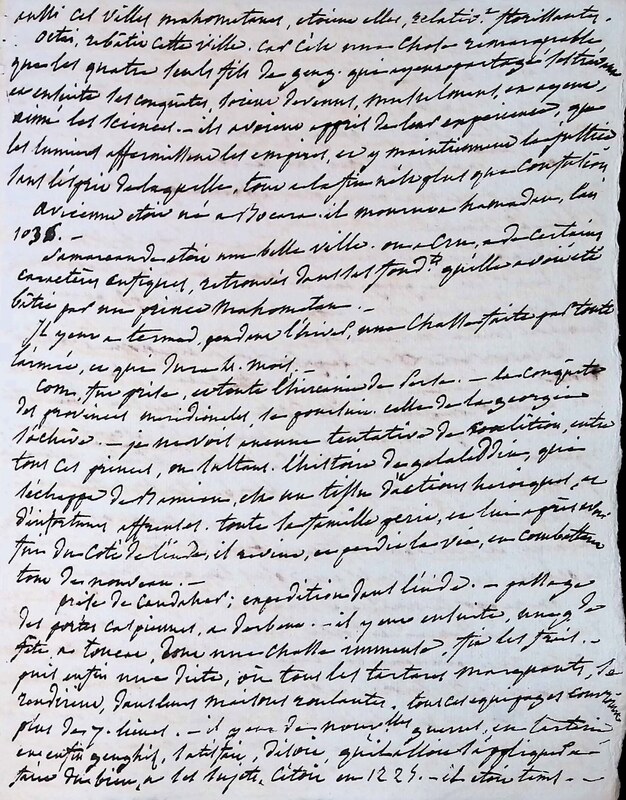 aussi ces villes mahometanes, etoient elles, relativt. florissantes.
octai, rebâtit cette ville. car c'est une chose remarquable
que les quatre seuls fils de geng. qui ayent partagé ses trésors
et ensuite ses conquêtes, soient devenus, musulmans, en ayent
aimé les sciences. — ils avoient appris de leur experience, que
les lumieres affermissent les empires, et y maintiennent la justice
sans l'esprit de laquelle, tout a la fin n'est plus que confusion
avicenne etoit né a Bocara. il mourut a hamadan, l'an
1036. —
Samarcande etoit une belle ville. on a cru, a de certains
caractères antiques, retrouvés dans ses fondts. qu'elle avoit été
bâtie par un prince Mahometan. —
Il y eut a termed, pendant l'hiver, une chasse faite par toute
l'armée, et qui dura 4. mois. —
Com, fut prise, et toute l'hircanie de Perse. — la conquête
des provinces meridionales, se poursuit. celle de la georgie
s'achève. — je ne vois aucune tentative de coalition, entre
tous ces princes, ou sultans. l'histoire de gelaleddin, qui
s'échappe de Bamian, est un tissu d'actions heroiques, et
d'infortunes affreuses. toute sa famille perit, et lui après
fui du coté de l'inde, il revient, et perdit la vie, en combattant
tout de nouveau. —
prise de Candahar; expedition dans l'inde. — passage
des portes caspiennes, a derbent. — il y eut ensuite, un g. de
fête a toncat, dont une chasse immense, fit les frais. —
puis enfin une diete, où tous les tartares marquants, se
rendirent, dans leurs maisons roulantes. tous ces equipages
plus de 7. lieues. — il y eut de nouvelles guerres, en tartarie
et enfin genghis, satisfait, disoit, qu'il alloit s'appliquer a
faire du bien, a ses sujets. c'étoit en 1225. — il etoit tems. —